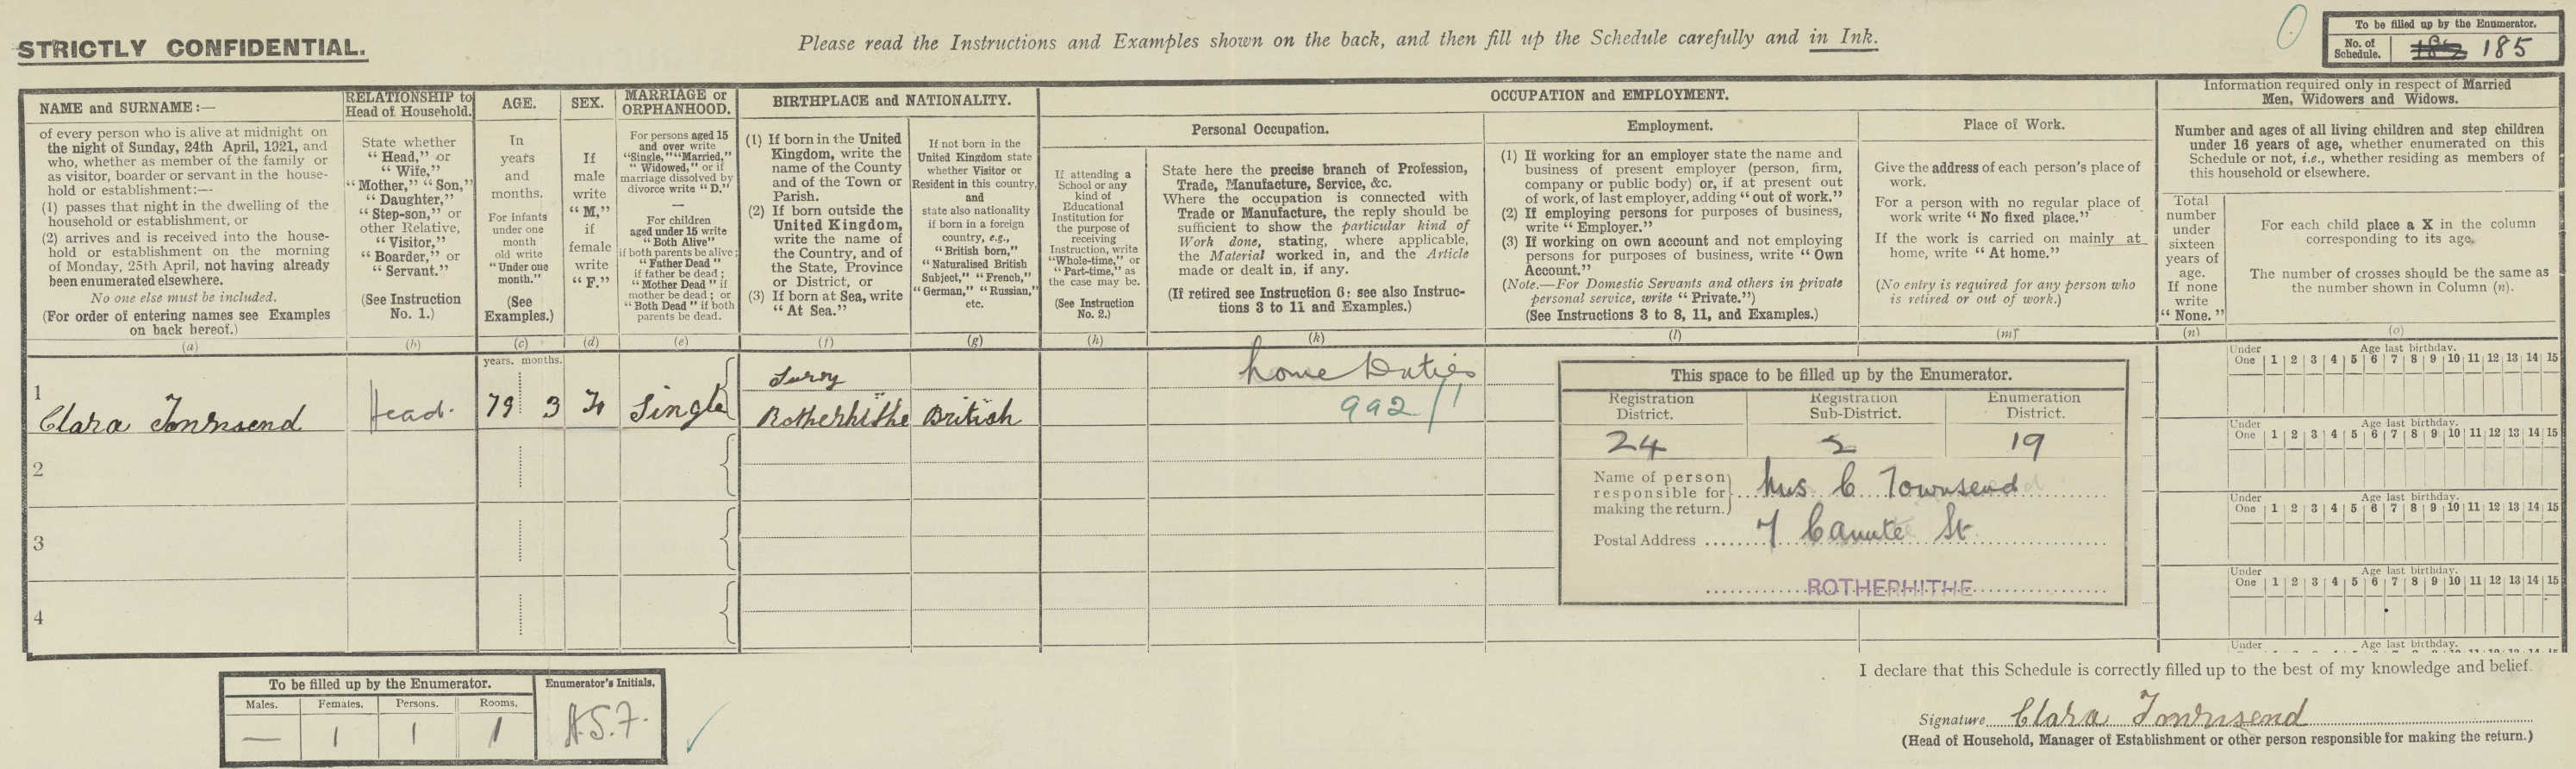 STRICTLY CONFIDENTIAL.
Please read the Instructions and Examples shown on the back, and then fill up the Schedule carefully and in Ink.
To be filled up by the Enumerator.
No. of Schedule. 185
NAME and SURNAME:—
of every person who is alive at midnight on
the night of Sunday, 24th April, 1921, and
who, whether as member of the family or
as visitor, boarder or servant in the house-
hold or establishment:—
(1) passes that night in the dwelling of the
household or establishment, or
(2) arrives and is received into the house-
hold or establishment on the morning
of Monday, 25th April, not having already
been enumerated elsewhere.
No one else must be included.
(For order of entering names see Examples
on back hereof.)
(a)
RELATIONSHIP to
Head of Household.
State whether
“Head,” or
“Wife,”
“Mother,” “Son,”
“Daughter,”
“Step-son,” or
other Relative,
“Visitor,”
“Boarder,” or
“Servant.”
(See Instruction
No. 1.)
(b)
AGE.
In
years
and
months.
For infants
under one
month
old write
“Under one
month.”
(See
Examples.)
(c)
SEX.
If
male
write
“M,”
if
female
write
“F.”
(d)
MARRIAGE or
ORPHANHOOD.
For persons aged 15
and over write
“Single,” “Married,”
“Widowed,” or if
marriage dissolved by
divorce write “D.”
—
For children
aged under 15 write
“Both Alive”
if both parents be alive;
“Father Dead”
if father be dead;
“Mother Dead” if
mother be dead; or
“Both Dead” if both
parents be dead.
(e)
BIRTHPLACE and NATIONALITY.
(1) If born in the United
Kingdom, write the
name of the County
and of the Town or
Parish.
(2) If born outside the
United Kingdom,
write the name of
the Country, and of
the State, Province
or District, or
(3) If born at Sea, write
“At Sea.”
(f)
If not born in the
United Kingdom state
whether Visitor or
Resident in this country,
and
state also nationality
if born in a foreign
country, e.g.,
“British born,”
“Naturalised British
Subject,” “French,”
“German,” “Russian,”
etc.
(g)
OCCUPATION and EMPLOYMENT.
Personal Occupation.
If attending a
School or any
kind of
Educational
Institution for
the purpose of
receiving
Instruction, write
“Whole-time,” or
“Part-time,” as
the case may be.
(See Instruction
No. 2.)
(h)
State here the precise branch of Profession,
Trade, Manufacture, Service, &c.
Where the occupation is connected with
Trade or Manufacture, the reply should be
sufficient to show the particular kind of
Work done, stating, where applicable,
the Material worked in, and the Article
made or dealt in, if any.
(If retired see Instruction 6: see also Instruc-
tions 3 to 11 and Examples.)
(k)
Employment.
(1) If working for an employer state the name and
business of present employer (person, firm,
company or public body) or, if at present out
of work, of last employer, adding “out of work.”
(2) If employing persons for purposes of business,
write “Employer.”
(3) If working on own account and not employing
persons for purposes of business, write “Own
Account.”
(Note.—For Domestic Servants and others in private
personal service, write “Private.”)
(See Instructions 3 to 8, 11, and Examples.)
(l)
Place of Work.
Give the address of each person's place of
work.
For a person with no regular place of
work write “No fixed place.”
If the work is carried on mainly at
home, write “At home.”
(No entry is required for any person who
is retired or out of work.)
(m)
Information required only in respect of Married
Men, Widowers and Widows.
Number and ages of all living children and step children
under 16 years of age, whether enumerated on this
Schedule or not, i.e., whether residing as members of
this household or elsewhere.
Total
number
under
sixteen
years of
age.
If none
write
“None.”
(n)
For each child place a X in the column
corresponding to its age.
The number of crosses should be the same as
the number shown in Column (n).
(o)
years. months.
1
Clara Townsend
Head.
79 3
F
Single
Surry
Rotherhithe
British
home Duties
992/1
2
3
4
This space to be filled up by the Enumerator.
Registration District.
Registration Sub-District.
Enumeration District.
24 2 19
Name of person
responsible for
making the return.
Mrs C Townsend
Postal Address
7 Canute St
ROTHERHITHE
Under Age last birthday.
One 1 2 3 4 5 6 7 8 9 10 11 12 13 14 15
Under Age last birthday.
One 1 2 3 4 5 6 7 8 9 10 11 12 13 14 15
Under Age last birthday.
One 1 2 3 4 5 6 7 8 9 10 11 12 13 14 15
Under Age last birthday.
One 1 2 3 4 5 6 7 8 9 10 11 12 13 14 15
Under Age last birthday.
To be filled up by the Enumerator.
Males. Females. Persons. Rooms.
— 1 1 1
Enumerator's Initials.
A.S.F.
I declare that this Schedule is correctly filled up to the best of my knowledge and belief.
Signature Clara Townsend
(Head of Household, Manager of Establishment or other person responsible for making the return.)